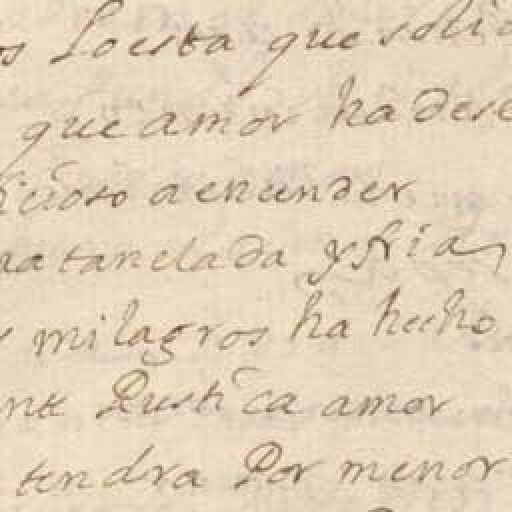 Poesta que soli
que amor ha dese
icioso a encender
tan elada y fria
milagros ha hecho
Rustica amor
tendra Por menor